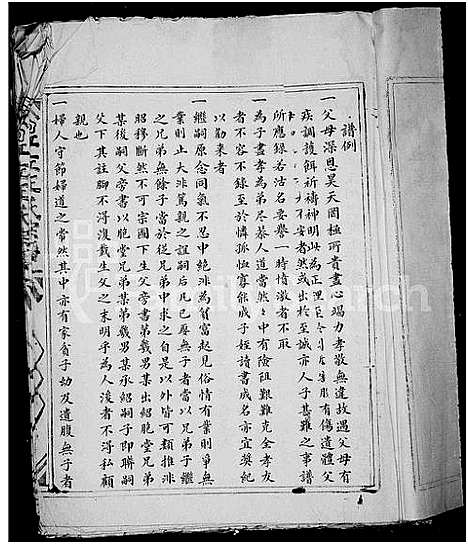 譜例
一父母深恩昊天罔極所貴盡心竭力孝敬無違故遇父母有
疾調護餌祈禱神明此為正理
有傷遺體父
不安者然或出於至誠亦人子甚難之事譜
所應錄若沽名要譽一時憤激者不取
一為子盡孝為弟尽恭人道當然之中有險阻艱難克全孝友
者不容不錄至於憐孫恤寡能成子姪讀書成名亦宜奬紀
以勸來者
一繼嗣原念同氣不忍中絕非為貧富起見俗情有業則爭無
業則止大非篤親之誼嗣后凡已房無子者當以兄弟子繼
之兄弟無餘子當於從兄弟中求之自是以外皆可類推非
昭穆斷然不可宗圖下生父旁書第幾男某出紹胞堂兄弟
某後嗣父旁書以胞堂兄弟某第幾男某承紹嗣子即聯嗣
父下其註脚不得沒載生父之末明乎為人後者不得私顧
親也
一婦人守節婦道之當然其中亦有家貧子幼及遺腹無子者